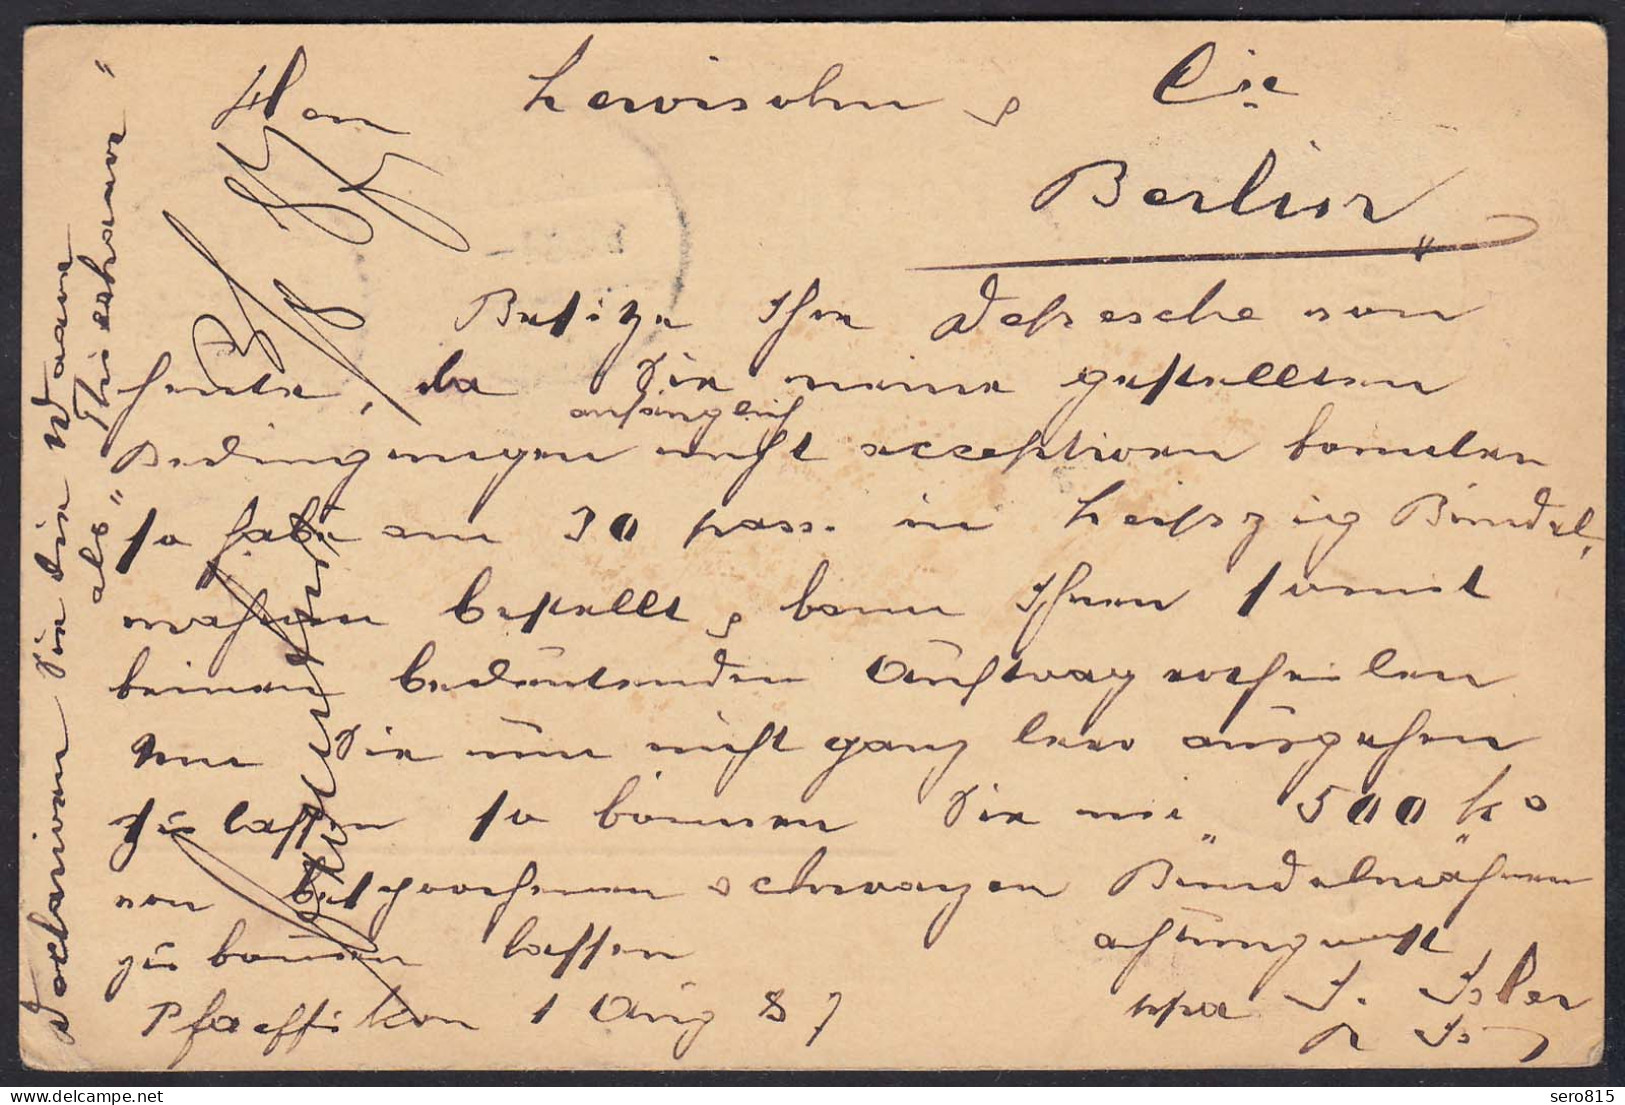 Herrn Lewisohn & Cie
Berlin
Besitze Ihre Depesche von
heute, da Sie meine gestellten
anfänglich
Bedingungen nicht acceptiren konnten
so habe am 30 pass. in Leipzig Bündel
mähnen bestellt, & kann Ihnen somit
keinen bedeutenden Auftrag ertheilen
um Sie nun nicht ganz leer ausgehen
zu lassen so können Sie mir 500 ko
von besprochenen schwarzen "Bündelmähnen"
zu kommen lassen
achtungsvollst
Pfaeffikon 1 Aug 87
ppa J. Isler
Declariren Sie die Waare
als "Thierhaare"
sero815